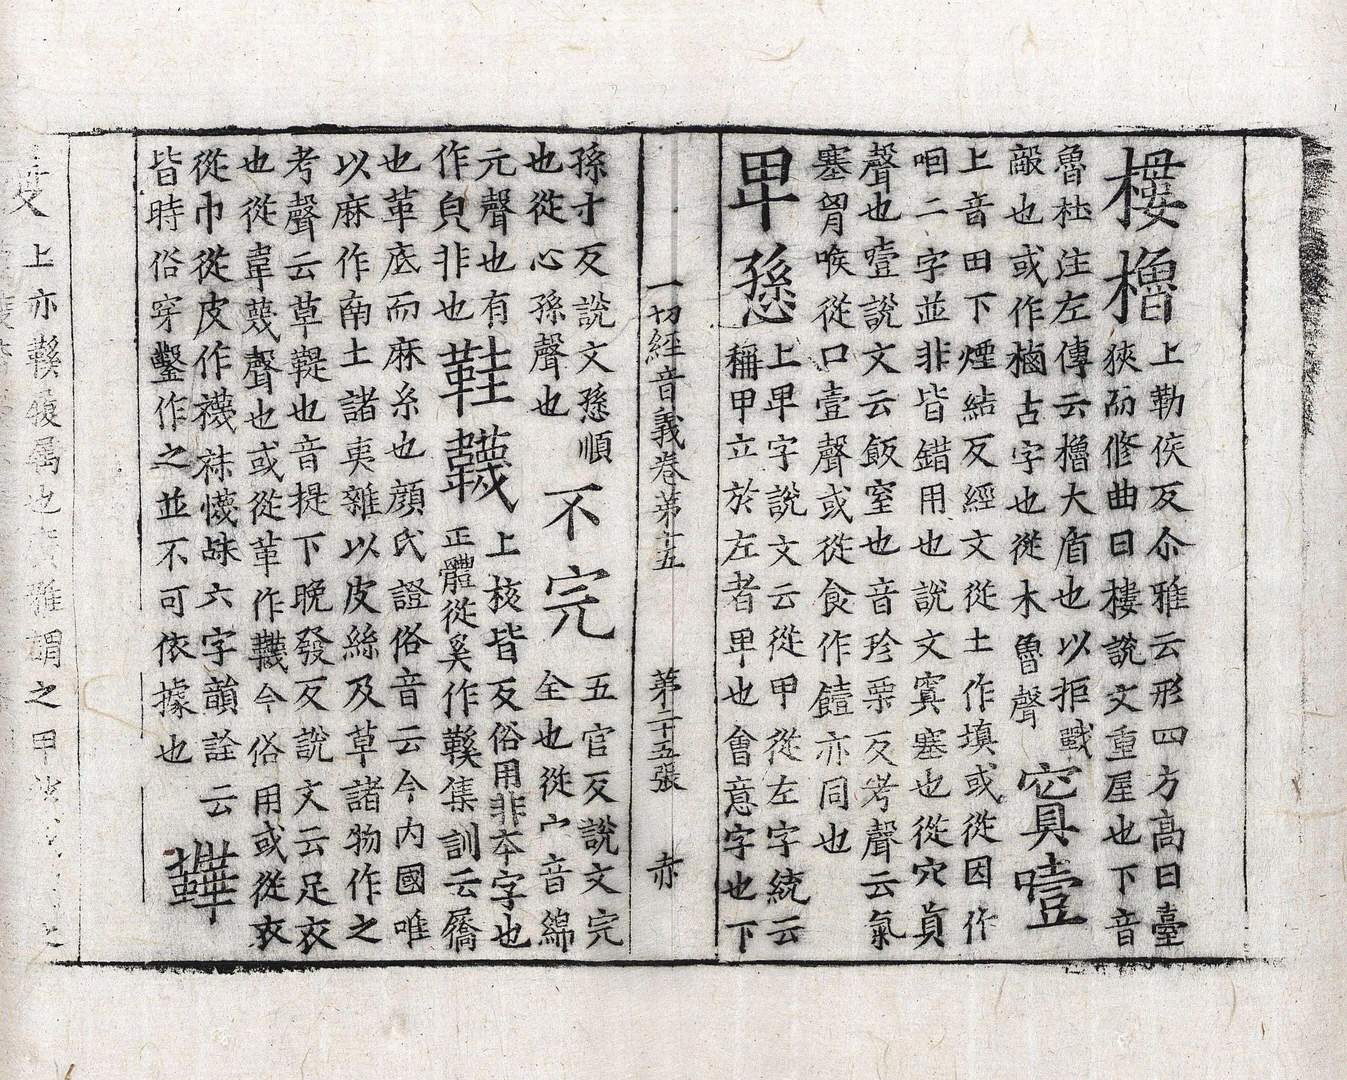 樓櫓上勒侯反尒雅云形四方高曰臺
狹而修曲曰樓說文重屋也下音
魯杜注左傳云櫓大盾也以拒戰
敵也或作樐古字也從木魯聲 窴噎
上音田下煙結反經文從土作填或從因作
咽二字並非皆錯用也說文窴塞也從穴真
聲也噎說文云飯窒也音珍栗反考聲云氣
塞胷喉從口壹聲或從食作饐亦同也
卑愻上卑字說文云從甲從左字統云
稱甲立於左者卑也會意字也下
一切經音義卷第十五 第二十五張 赤
孫寸反說文愻順
也從心孫聲也 不完五官反說文完
全也從宀音綿
元聲也有
作㒵非也 鞋韈上核皆反俗用非本字也
正體從奚作鞵集訓云屩
也革底而麻糸也顔氏證俗音云今内國唯
以麻作南土諸夷雜以皮絲及草諸物作之
考聲云草鞮也音提下晩發反說文云足衣
也從韋蔑聲也或從革作韈今俗用或從衣
從巾從皮作襪袜幭䍪六字韻詮云
皆時俗穿鑿作之並不可依據也 鞾
上亦鞵履属也 雅謂之